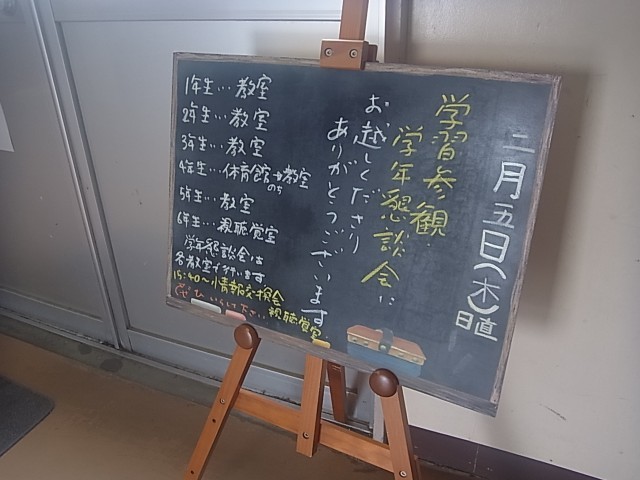 二月五日(木)
日直
学習参観・
学年懇談会に
お越しくださり
ありがとうございます
1年生…教室
2年生…教室
3年生…教室
4年生…体育館→教室
のち
5年生…教室
6年生…視聴覚室
学年懇談会は
各教室で行います
15:40〜小中情報交換会
ぜひいらして下さい 視聴覚室